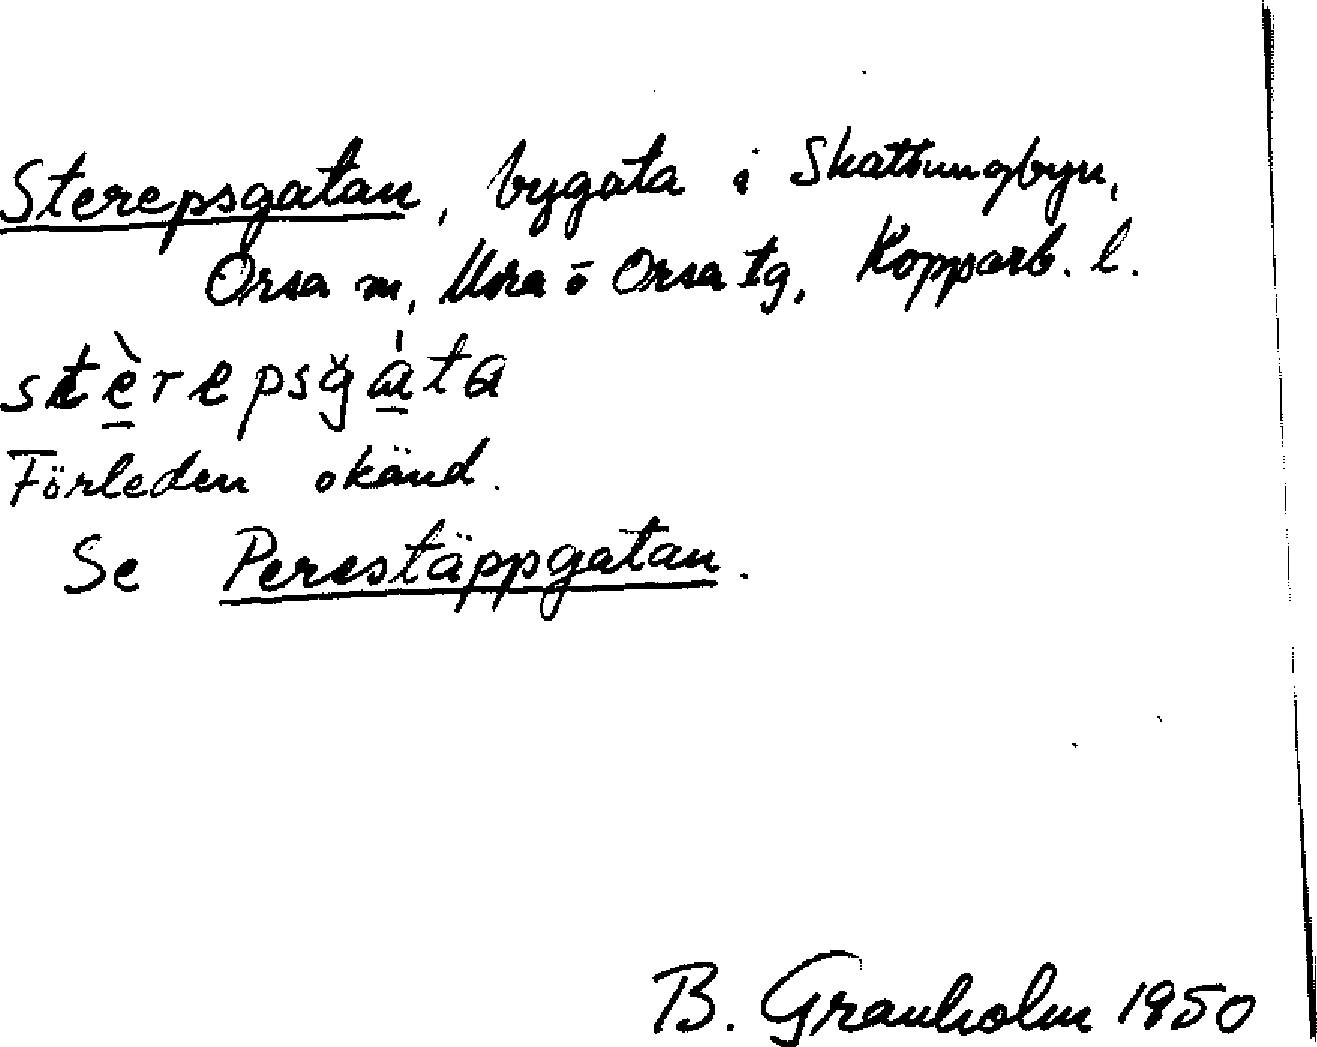 Sterepsgatan, bygata i Skattungbyn,
Orsa sn, Mora o Orsa tg, Kopparb. l.
stè̠repsğà̠ta
Förleden okänd.
Se Perestäppgatan.
B. Granholm 1950